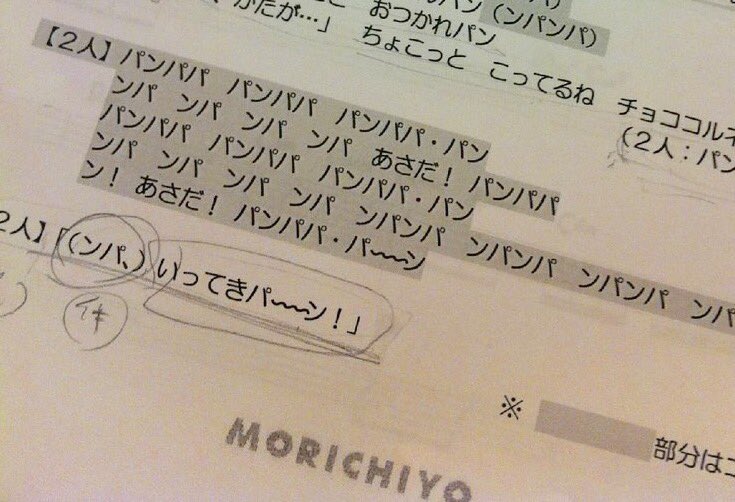 パン（ンパンパ）
かたが…」 おつかれパン
ちょこっと こってるね チョココルネ
（２人：パン
【２人】パンパパ パンパパ パンパパ・パン
ンパ ンパ ンパ ンパ あさだ！ パンパパ
パンパパ パンパパ パンパパ・パン
ンパ ンパ ンパ ンパ ンパンパ ンパンパ ンパンパ ンパ
ン！ あさだ！ パンパパ・パ〜〜ン
２人】「（ンパ、）いってきパ〜〜ン！」
※ 部分はコ
MORICHIYO